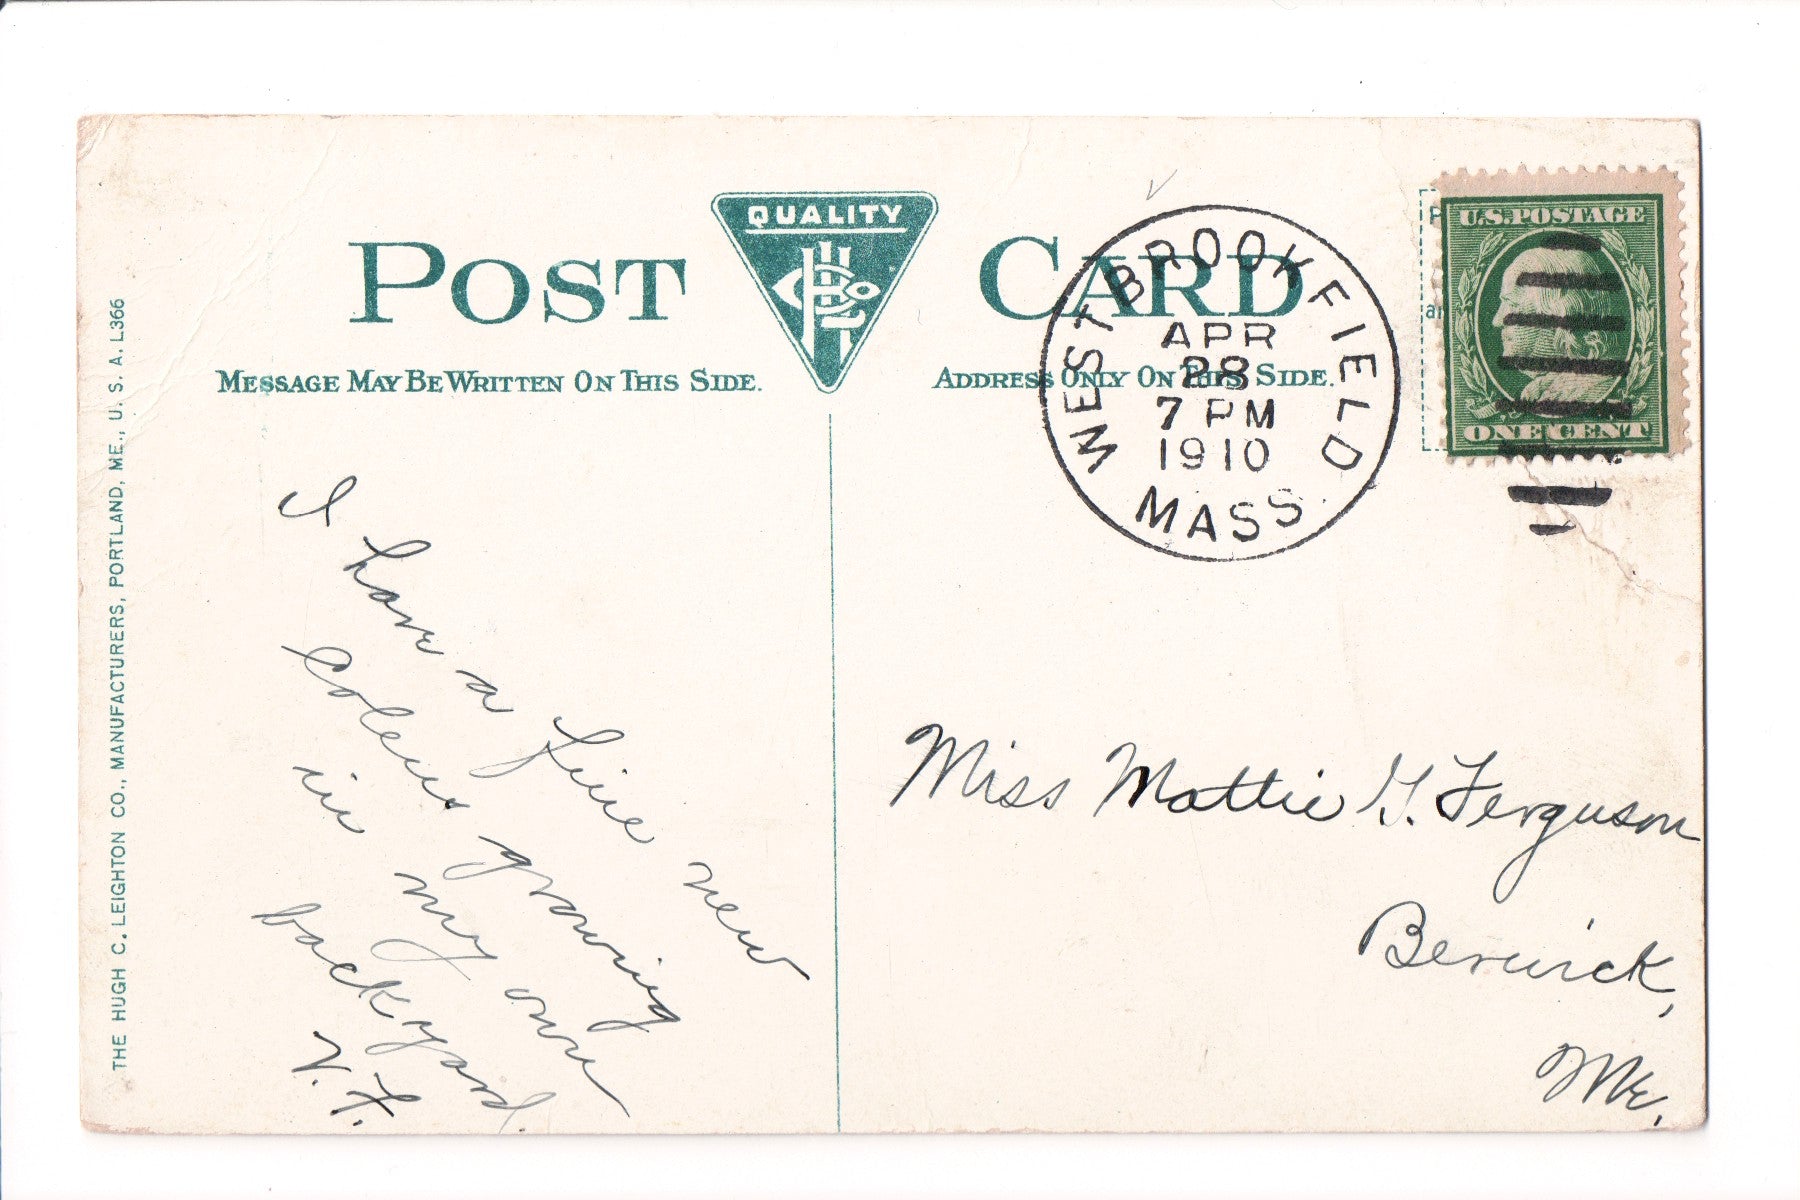 POST CARD
QUALITY
MESSAGE MAY BE WRITTEN ON THIS SIDE.
ADDRESS ONLY ON THIS SIDE.
WEST BROOKFIELD
APR
28
7 PM
1910
MASS.
U.S. POSTAGE
ONE CENT
THE HUGH C. LEIGHTON CO., MANUFACTURERS, PORTLAND, ME., U. S. A. L366
I have a fine new
Coleus growing
in my own
back yard.
V. F.
Miss Mattie G. Ferguson
Berwick,
Me.